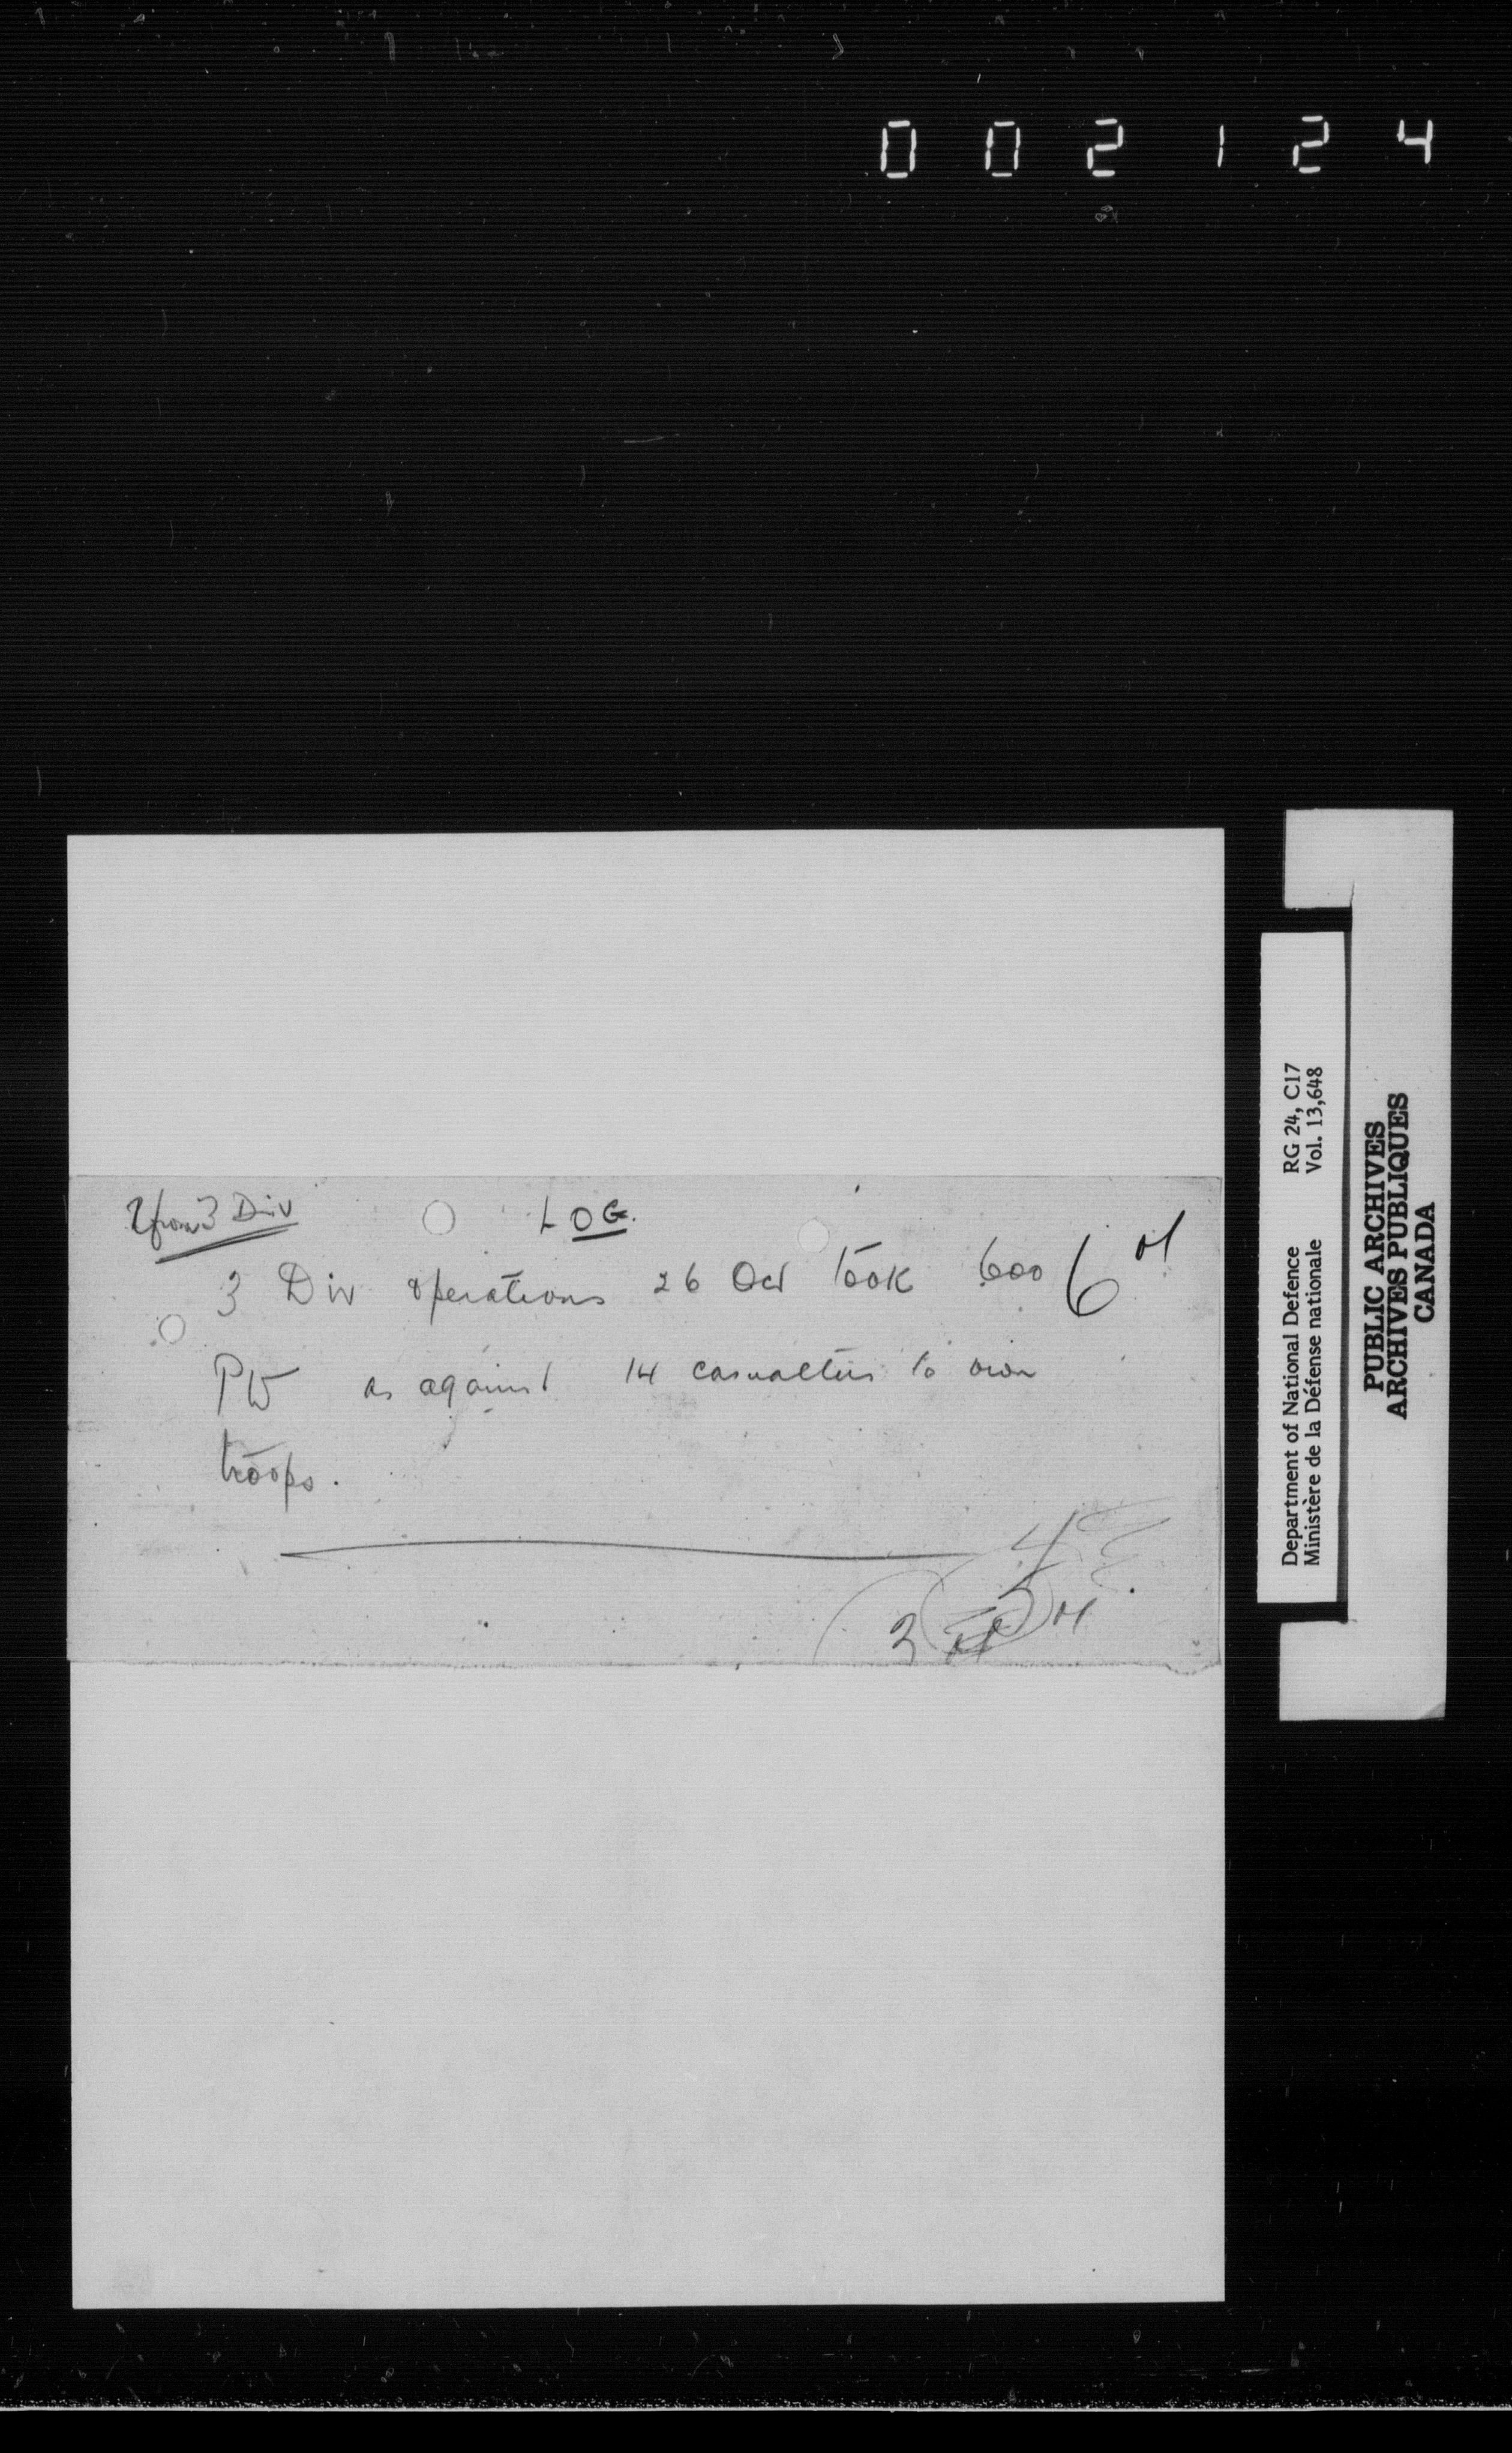 002124
from 3 Div
LOG.
3 Div operations 26 Oct took 600
6
PW as against 14 casualties to own
troops.
3
Department of National Defence RG 24, C17
Ministère de la Défense nationale Vol. 13,648
PUBLIC ARCHIVES
ARCHIVES PUBLIQUES
CANADA